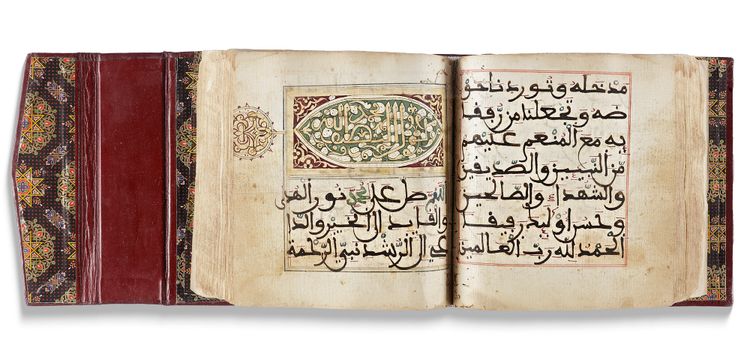 مدخله وتوردنا حو
ضه وتجعلنا من رفقا
يه مع المنعم عليهم
من النبيين والصديقين
والشهداء والصالحين
وحسن اوليك رفيقا
الحمد لله رب العالمين
صل على محمد نور الهدى
والقايد الى الخير والدا
عي الى الرشد نبي الرحمة